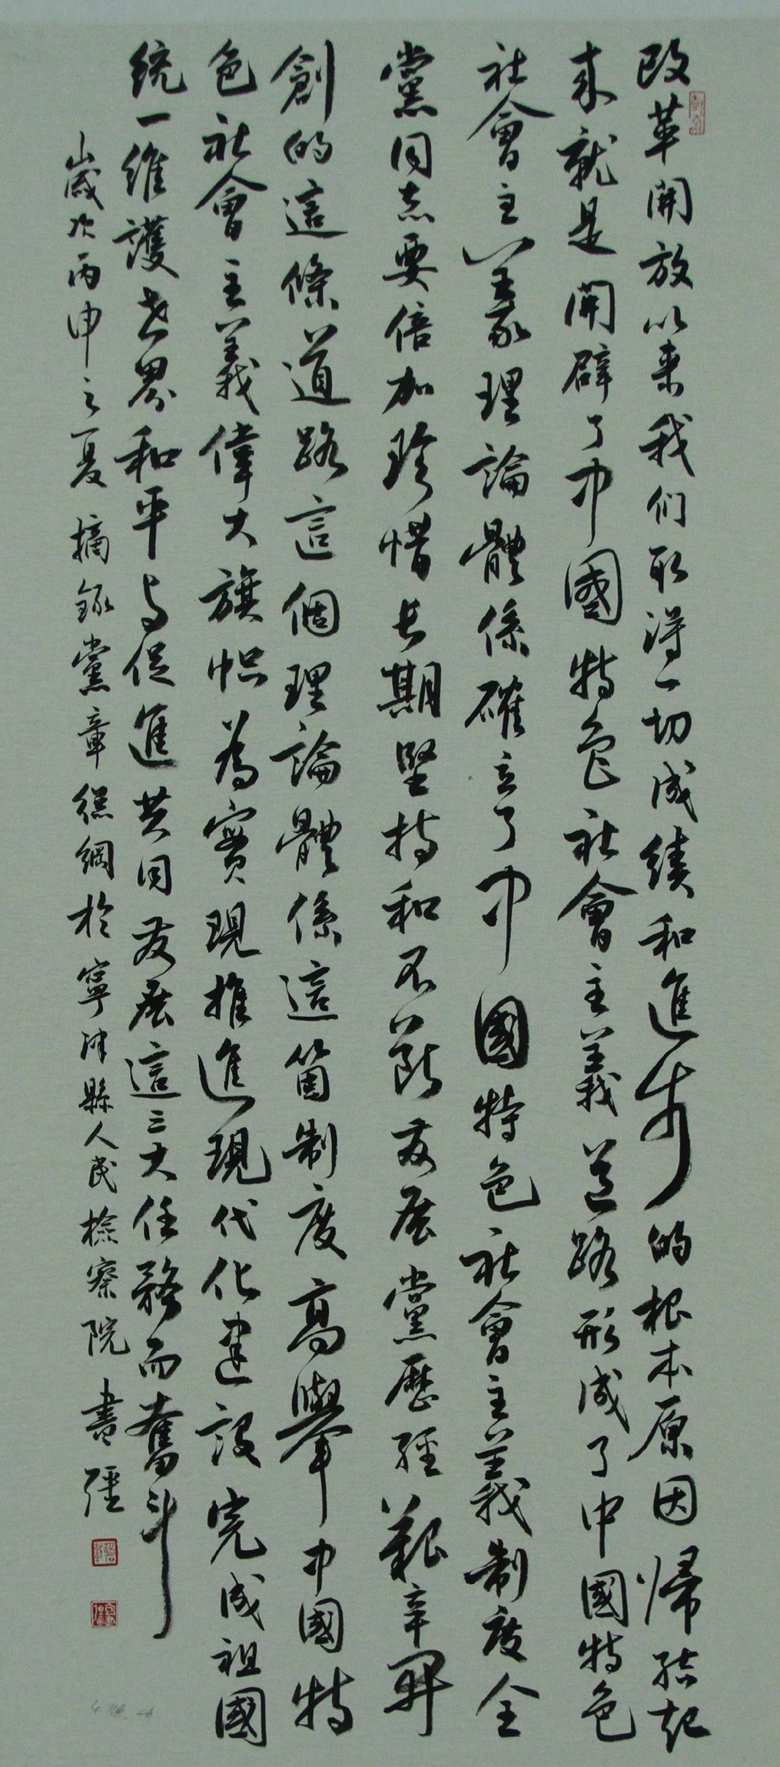 改革開放以来我们取得一切成績和進步的根本原因歸结起
来就是開辟了中國特色社會主義道路形成了中國特色
社會主義理論體係確立了中國特色社會主義制度全
黨同志要倍加珍惜长期堅持和不斷发展黨歷經艱辛開
創的這條道路這個理論體係這箇制度高舉中國特
色社會主義偉大旗帜為實現推進現代化建設完成祖國
統一維護世界和平与促進共同发展這三大任務而奮斗
歲次丙申之夏摘錄黨章總綱於寧津縣人民檢察院 書